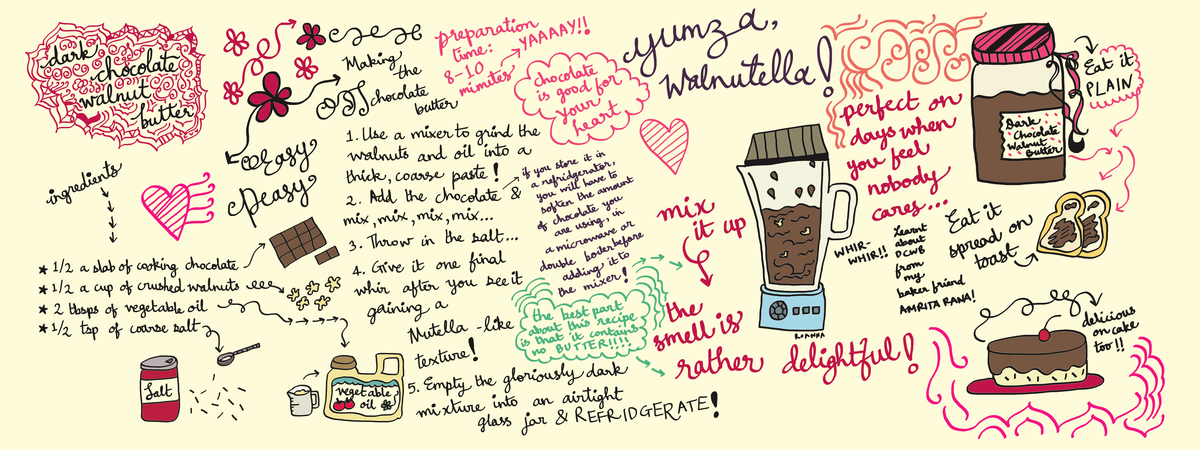 dark
chocolate
walnut
butter
ingredients
* 1/2 a slab of cooking chocolate
* 1/2 a cup of crushed walnuts
* 2 tbsps of vegetable oil
* 1/2 tsp of coarse salt
Salt
vegetable
oil
easy
Peasy
Making
the
chocolate
butter
preparation
time:
8-10
mimites
YAAAAY!!
chocolate
is good for
your
heart
1. Use a mixer to grind the
walnuts and oil into a
thick, coarse paste!
2. Add the chocolate &
mix, mix, mix, mix...
3. Throw in the salt...
4. Give it one final
whir after you see it
gaining a
Nutella-like
texture!
5. Empty the gloriously dark
mixture into an airtight
glass jar & REFRIDGERATE!
if you store it in
a refridgerator,
you will have to
soften the amount
of chocolate you
are using, in
a microwave or
double boiler before
adding it to
the mixer!
the best part
about this recipe
is that it contains
no BUTTER!!!!
yumza,
Walnutella!
mix
it up
the
smell is
rather delightful!
WHIR-
WHIR!!
ROANNA
perfect on
days when
you feel
nobody
cares...
Learnt
about
DCWB
from
my
baker friend
AMRITA RANA!
Dark
Chocolate
Walnut
Butter
Eat it
PLAIN
Eat it
spread on
toast
delicious
on cake
too!!